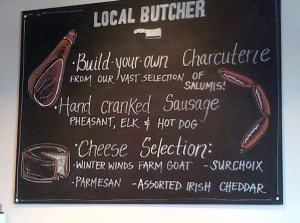 LOCAL BUTCHER
• Build-your-own Charcuterie
FROM OUR VAST SELECTION OF
SALUMIS!
• Hand cranked Sausage
PHEASANT, ELK & HOT DOG
• Cheese Selection:
• WINTER WINDS FARM GOAT - SURCHOIX
• PARMESAN - ASSORTED IRISH CHEDDAR